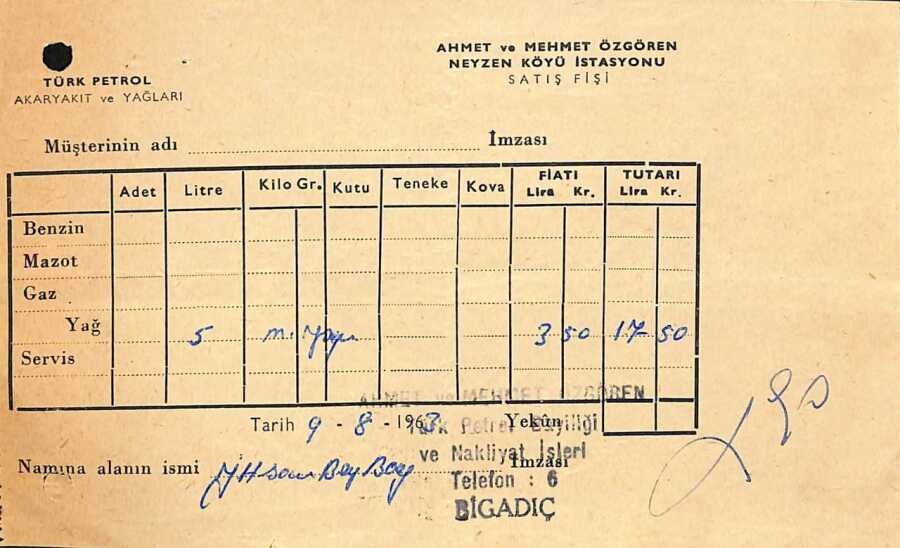 AHMET ve MEHMET ÖZGÖREN
NEYZEN KÖYÜ İSTASYONU
SATIŞ FİŞİ
TÜRK PETROL
AKARYAKIT ve YAĞLARI
Müşterinin adı İmzası
Adet Litre Kilo Gr. Kutu Teneke Kova FİATI Lira Kr. TUTARI Lira Kr.
Benzin
Mazot
Gaz
Yağ 5 m. 3 50 17 50
Servis
AHMET ve MEHMET ÖZGÖREN
Tarih 9 - 8 - 1963 Yekûn
Türk Petrol Bayiliği
ve Nakliyat İşleri
Namına alanın ismi İmzası
Telefon : 6
BİGADİÇ